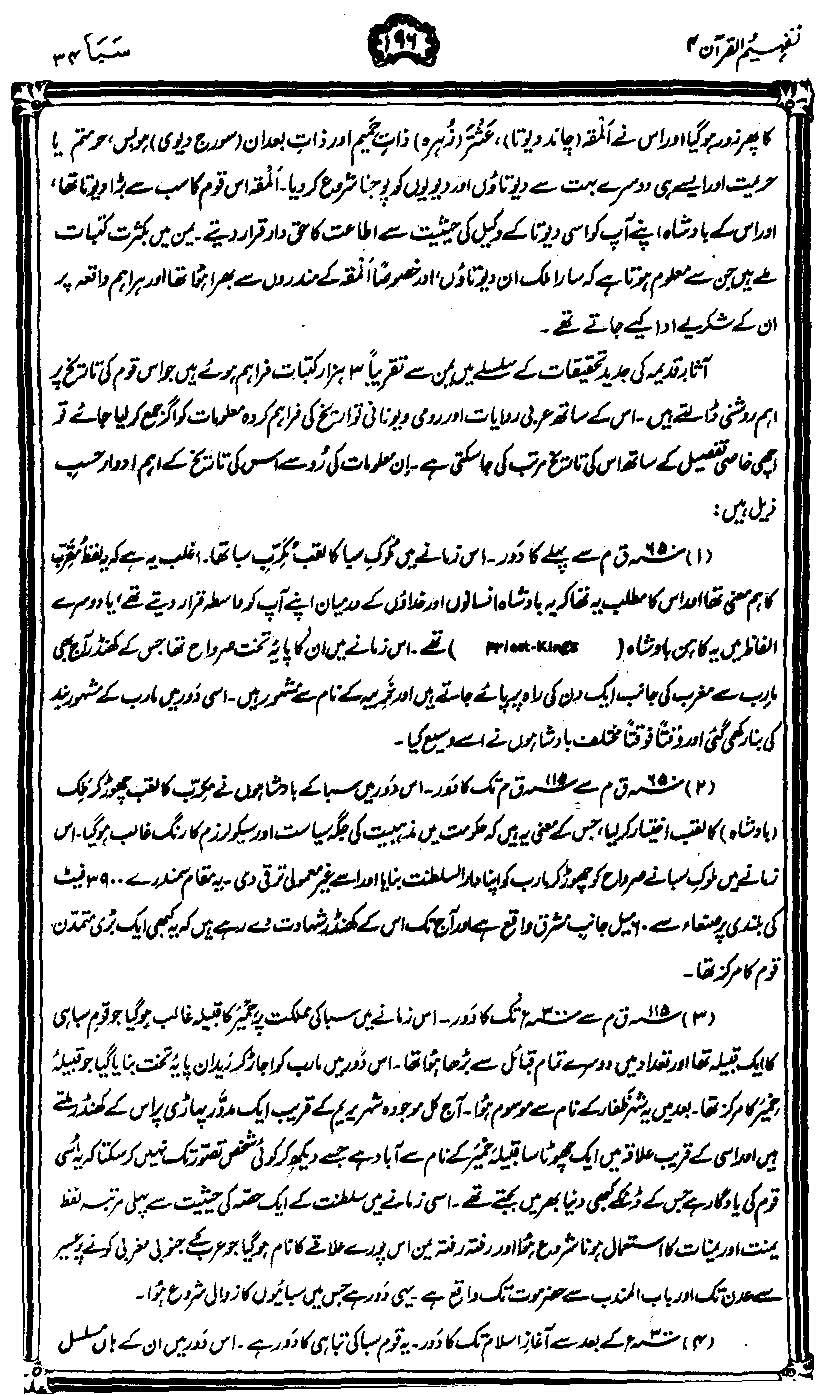 تفہیم القرآن ۴
۱۹۶
سَبَا ۳۴
کا پھر زور ہو گیا اور اس نے اَلْمقہ (چاند دیوتا)، عَشْتَر (زُہرہ) ذاتِ حَمیم اور ذاتِ بعدان (سورج دیوی) ہوبس، حرمتم یا
حریمت اور ایسے ہی دوسرے بہت سے دیوتاؤں اور دیویوں کو پوجنا شروع کر دیا۔ اَلْمقہ اس قوم کا سب سے بڑا دیوتا تھا،
اور اس کے بادشاہ اپنے آپ کو اسی دیوتا کے وکیل کی حیثیت سے اطاعت کا حق دار قرار دیتے تھے۔ یمن میں بکثرت کتبات
ملے ہیں جن سے معلوم ہوتا ہے کہ سارا ملک ان دیوتاؤں، اور خصوصًا اَلْمقہ کے مندروں سے بھرا ہُوا تھا اور ہر اہم واقعہ پر
ان کے شکریے ادا کیے جاتے تھے۔
آثارِ قدیمہ کی جدید تحقیقات کے سلسلے میں یمن سے تقریباً ۳ ہزار کتبات فراہم ہوئے ہیں جو اس قوم کی تاریخ پر
اہم روشنی ڈالتے ہیں۔ اس کے ساتھ عربی روایات اور رومی و یونانی تواریخ کی فراہم کردہ معلومات کو اگر جمع کر لیا جائے تو
اچھی خاصی تفصیل کے ساتھ اس کی تاریخ مرتب کی جا سکتی ہے۔ اِن معلومات کی رُو سے اس کی تاریخ کے اہم ادوار حسبِ
ذیل ہیں:
(۱) ۶۵۰ ق م سے پہلے کا دَور۔ اس زمانے میں مُلوکِ سبا کا لقب مُکَرِّبِ سبا تھا۔ اغلب یہ ہے کہ یہ لفظ مُقَرِّب
کا ہم معنی تھا اور اس کا مطلب یہ تھا کہ یہ بادشاہ انسانوں اور خداؤں کے درمیان اپنے آپ کو واسطہ قرار دیتے تھے، یا دوسرے
الفاظ میں یہ کاہن بادشاہ (Priest-Kings) تھے۔ اس زمانے میں ان کا پایۂ تخت صرواح تھا جس کے کھنڈر آج بھی
مارِب سے مغرب کی جانب ایک دن کی راہ پر پائے جاتے ہیں اور خَرِیبہ کے نام سے مشہور ہیں۔ اسی دَور میں مارب کے مشہور بند
کی بنا رکھی گئی اور وَقتًا فوَقتًا مختلف بادشاہوں نے اسے وسیع کیا۔
(۲) ۶۵۰ ق م سے ۱۱۵ ق م تک کا دَور۔ اس دَور میں سبا کے بادشاہوں نے مکرّب کا لقب چھوڑ کر مَلِک
(بادشاہ) کا لقب اختیار کر لیا، جس کے معنی یہ ہیں کہ حکومت میں مذہبیت کی جگہ سیاست اور سیکولرزم کا رنگ غالب ہو گیا۔ اس
زمانے میں ملوکِ سبا نے صرواح کو چھوڑ کر مارب کو اپنا دار السلطنت بنایا اور اسے غیر معمولی ترقی دی۔ یہ مقام سمندر سے ۳۹۰۰ فیٹ
کی بلندی پر صنعاء سے ۶۰ میل جانبِ مشرق واقع ہے اور آج تک اس کے کھنڈر شہادت دے رہے ہیں کہ یہ کبھی ایک بڑی متمدن
قوم کا مرکز تھا۔
(۳) ۱۱۵ ق م سے ۳۰۰ء تک کا دَور۔ اس زمانے میں سبا کی مملکت پر حِمْیَر کا قبیلہ غالب ہو گیا جو قومِ سبا ہی
کا ایک قبیلہ تھا اور تعداد میں دوسرے تمام قبائل سے بڑھا ہُوا تھا۔ اس دَور میں مارب کو اجاڑ کر رَیدان پایۂ تخت بنایا گیا جو قبیلۂ
حِمْیَر کا مرکز تھا۔ بعد میں یہ شہر ظَفار کے نام سے موسوم ہُوا۔ آج کل موجودہ شہر یریم کے قریب ایک مدوَّر پہاڑی پر اس کے کھنڈر ملتے
ہیں اور اسی کے قریب علاقہ میں ایک چھوٹا سا قبیلہ حِمْیَر کے نام سے آباد ہے جسے دیکھ کر کوئی شخص تصوّر تک نہیں کر سکتا کہ یہ اُسی
قوم کی یادگار ہے جس کے ڈنکے کبھی دنیا بھر میں بجتے تھے۔ اسی زمانے میں سلطنت کے ایک حصّہ کی حیثیت سے پہلی مرتبہ لفظ
یمنت اور یمنات کا استعمال ہونا شروع ہُوا اور رفتہ رفتہ یمن اس پورے علاقے کا نام ہو گیا جو عرب کے جنوبی مغربی کونے پر عسیر
سے عدن تک اور باب المندب سے حضرموت تک واقع ہے۔ یہی دَور ہے جس میں سبائیوں کا زوال شروع ہُوا۔
(۴) ۳۰۰ء کے بعد سے آغازِ اسلام تک کا دَور۔ یہ قومِ سبا کی تباہی کا دَور ہے۔ اس دَور میں ان کے ہاں مسلسل